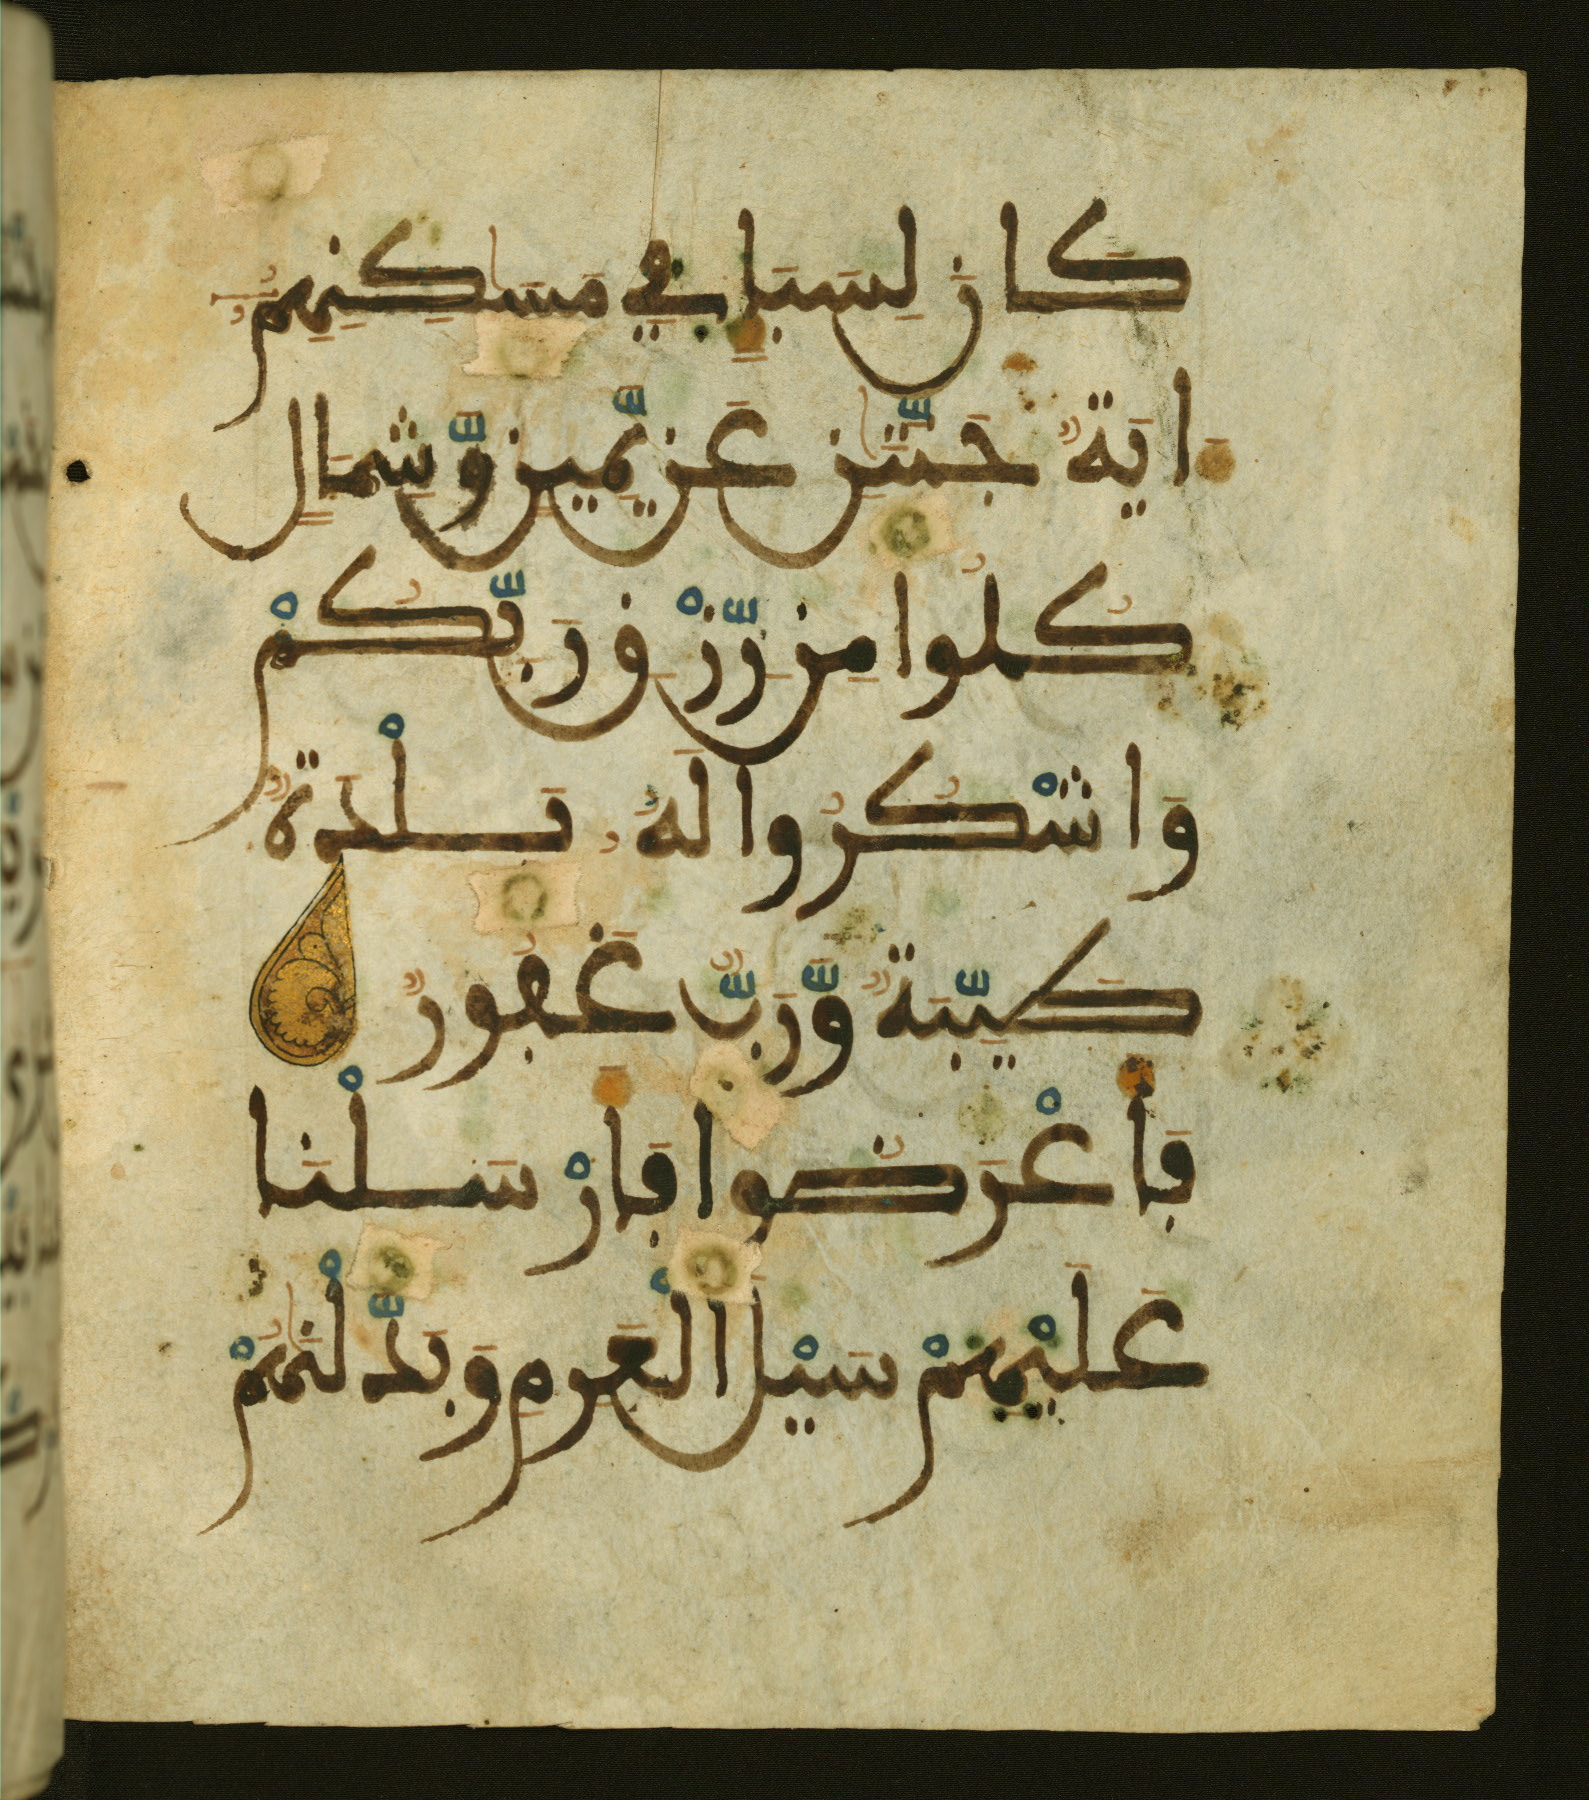 كَانَ لِسَبَإٍ فِي مَسَٰكِنِهِمُۥٓ
ءَايَةٌ جَنَّتَٰنِ عَنْ يَّمِينٍ وَّشِمَالٍ
كُلُوا مِن رِّزْقِ رَبِّكُمْ
وَاشْكُرُوا لَهُۥ بَلْدَةٌ
طَيِّبَةٌ وَّرَبٌّ غَفُورٌ
فَأَعْرَضُوا فَأَرْسَلْنَا
عَلَيْهِمْ سَيْلَ الْعَرِمِ وَبَدَّلْنَٰهُمْ